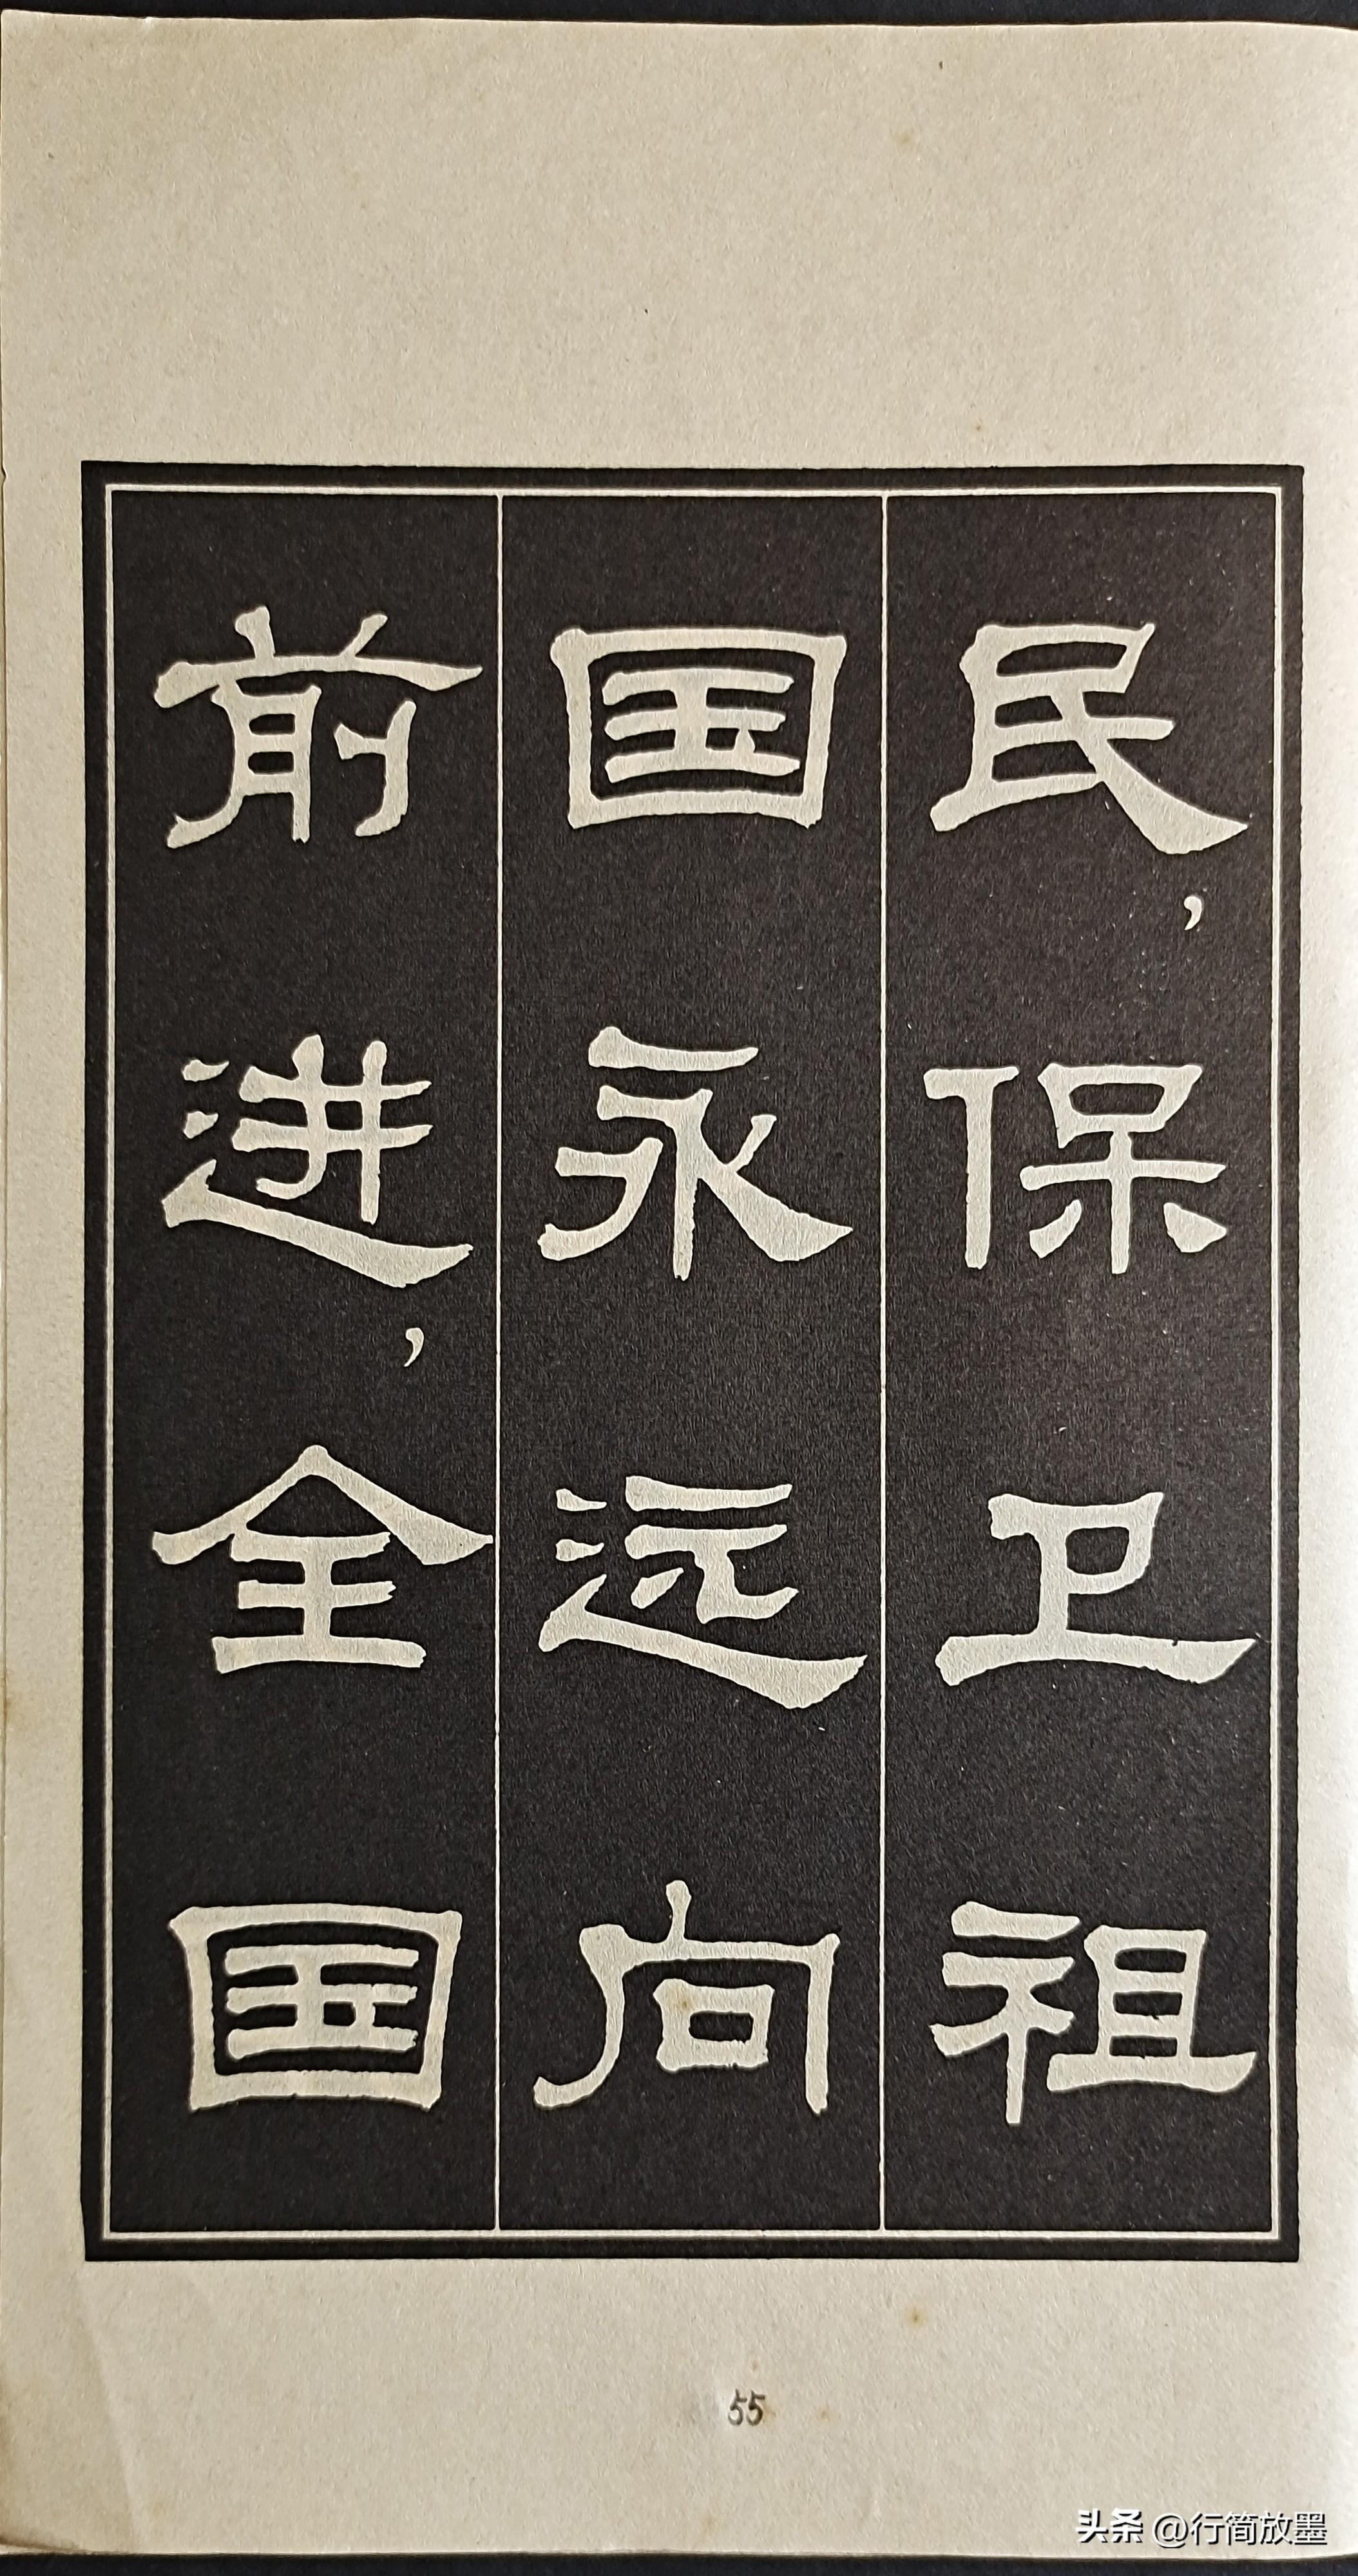 民，保卫祖
国永远向
前进，全国
55
头条 @行简放墨